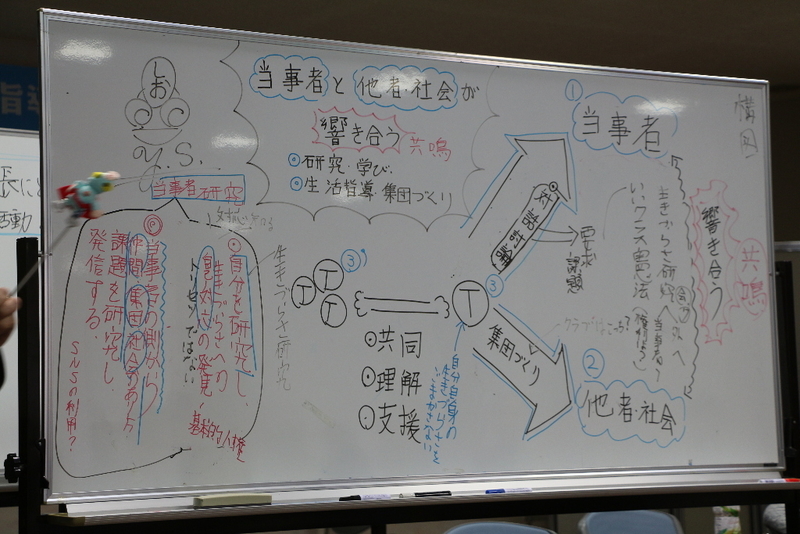 しお
Y.S.
当事者と他者・社会が
響き合う 共鳴
研究・学び
生活指導 集団づくり
構図
①
当事者
当事者研究
自分を研究し、
生きづらさへの
トリセツではない
基本的人権
当事者の側から
仲間・集団社会のあり方
課題を研究し
発信する。
SNSの利用?
生きづらさ研究
T
T
T
③'
T
③
共同
理解
支援
自分自身の
生きづらさを
ごまかさない
対話討論
要求
課題
集団づくり
②
他者・社会
生きづらさ研究
いいクラス憲法
響き合う
共鳴
指導
活動